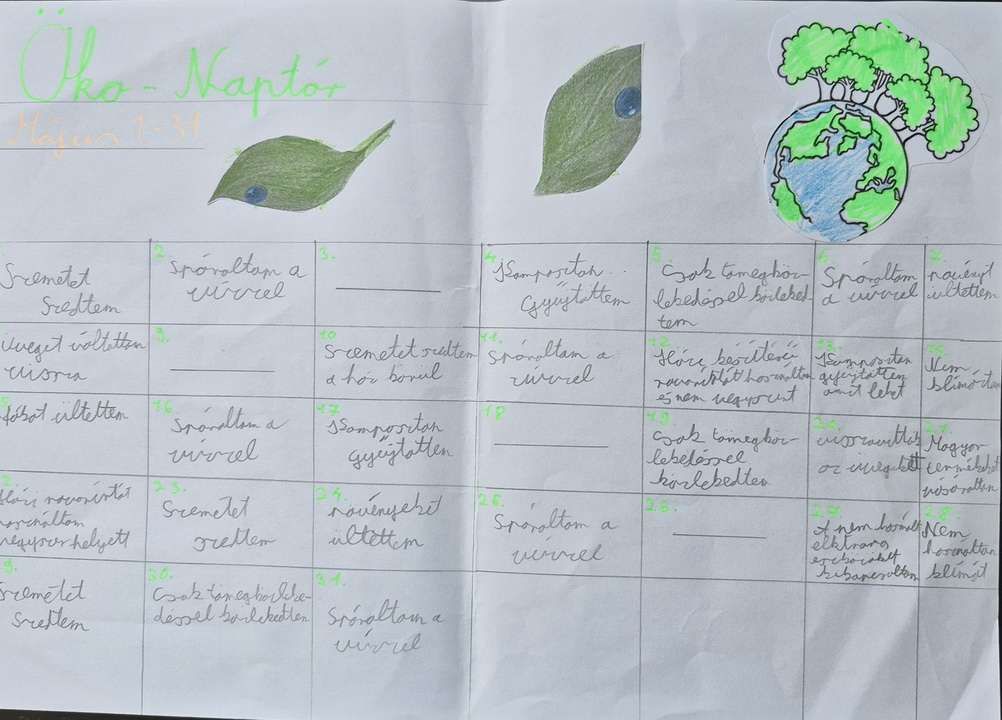 Öko-Naptár
Május 1-31
Szemetet
Szedtem
2.
Spóroltam a
vízzel
3.
4.
Komposztan
Gyűjtöttem
5.
Csak tömegköz-
lekedéssel közleked
tem
6.
Spóroltam
a vízzel
7.
növényt
ültettem
üveget váltottam
vissza
9.
10
Szemetet szedtem
a ház körül
11.
Spóroltam a
vízzel
12.
Házi készítésű
rovarírtót használtam
és nem vegyszert
13.
Komposztan
gyűjtöttem
amit lehet
Nem
klímáztam
fákat ültettem
16.
Spóroltam a
vízzel
17
Komposztan
gyűjtöttem
18
19.
Csak tömegköz-
lekedéssel
közlekedtem
20.
visszavittük
az üvegeket
21.
Magyar
termékeket
vásároltam
Házi rovarírtót
használtam
vegyszer helyett
23.
Szemetet
szedtem
24.
növényeket
ültettem
26.
Spóroltam a
vízzel
27.
A nem használt
elektromos
eszközöket
kikapcsoltam
28.
Nem
használtam
klímát
9.
Szemetet
Szedtem
30.
Csak tömegközleke-
déssel közlekedtem
31.
Spóroltam a
vízzel